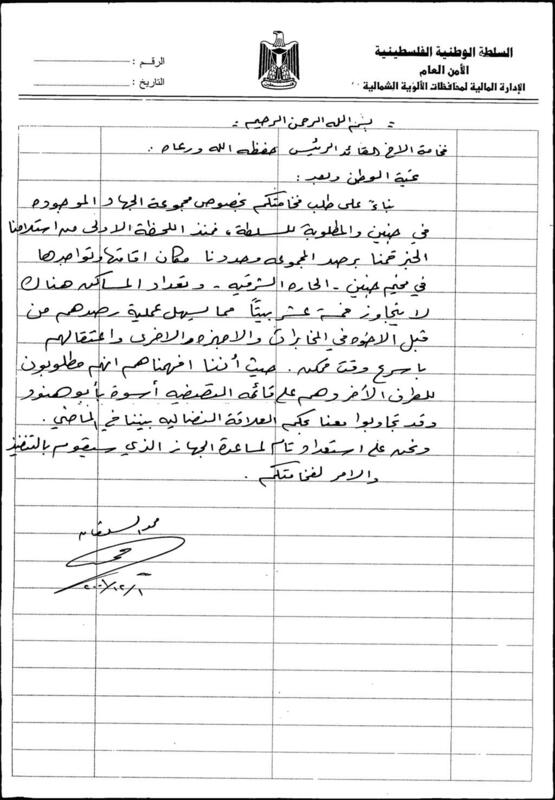 السلطة الوطنية الفلسطينية
الأمن العام
الإدارة المالية لمحافظات الألوية الشمالية
الرقم :
التاريخ :
بسم الله الرحمن الرحيم
فخامة الاخ القائد الرئيس حفظه الله ورعاه :
تحية الوطن وبعد :
بناءً على طلب فخامتكم بخصوص مجموعة الجهاد الموجوده
في جنين والمطلوبة للسلطة ، فمنذ اللحظة الاولى من استلامنا
الخبر قمنا برصد المجموعه وحددنا مكان اقامتها وتواجدها
في مخيم جنين - الحاره الشرقيه - وتعداد المساكن هناك
لا يتجاوز خمسة عشر بيتاً مما يسهل عملية رصدهم من
قبل الاخوه في المخابرات والاجهزه والاخرى واعتقالهم
باسرع وقت ممكن . حيث أننا افهمناهم انهم مطلوبون
للطرف الآخر وهم على قائمه التصفيه أسوة بأبو هنود
وقد تجاوبوا معنا بحكم العلاقة النضاليه بيننا في الماضي .
ونحن على استعداد تام لمساعدة الجهاز الذي سيقوم بالتنفيذ
والامر لفخامتكم .